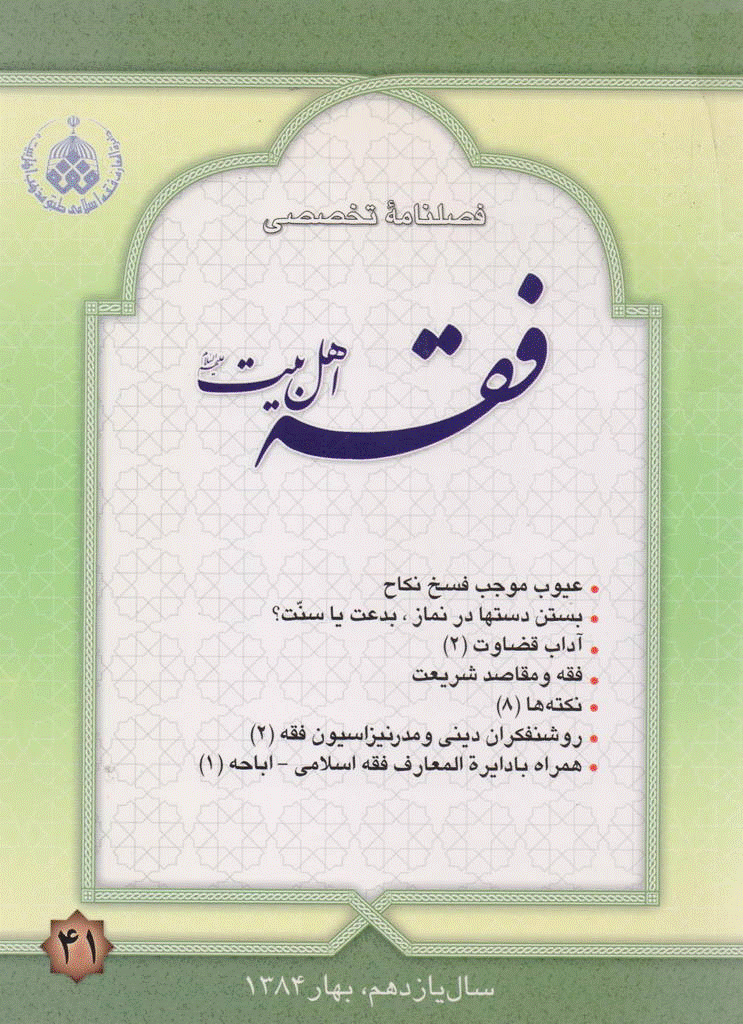 فصلنامهٔ تخصصی
فقه
اهل بیت
علیهم السلام
عیوب موجب فسخ نکاح
بستن دستها در نماز ، بدعت یا سنّت؟
آداب قضاوت (۲)
فقه و مقاصد شریعت
نکته‌ها (۸)
روشنفکران دینی و مدرنیزاسیون فقه (۲)
همراه با دایرة المعارف فقه اسلامی - اباحه (۱)
۴۱
سال یازدهم، بهار ۱۳۸۴